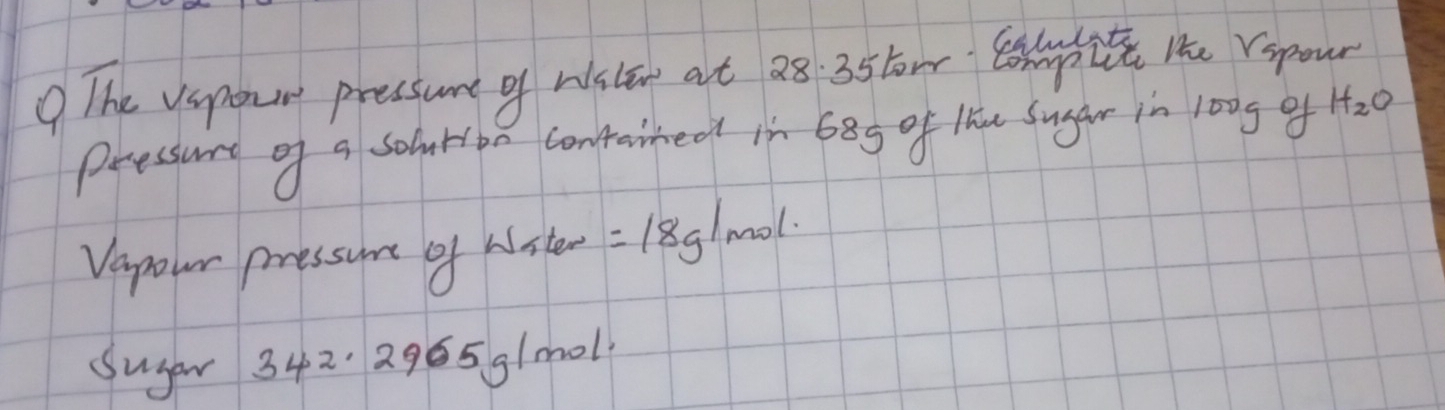 Q The vapour pressure of water at 28.35torr. Calulate the Vapour
pressure of a solution contained in 68g of the sugar in 100g of H2O
Vapour pressure of Water = 18g/mol.
Sugar 342.2965g/mol.